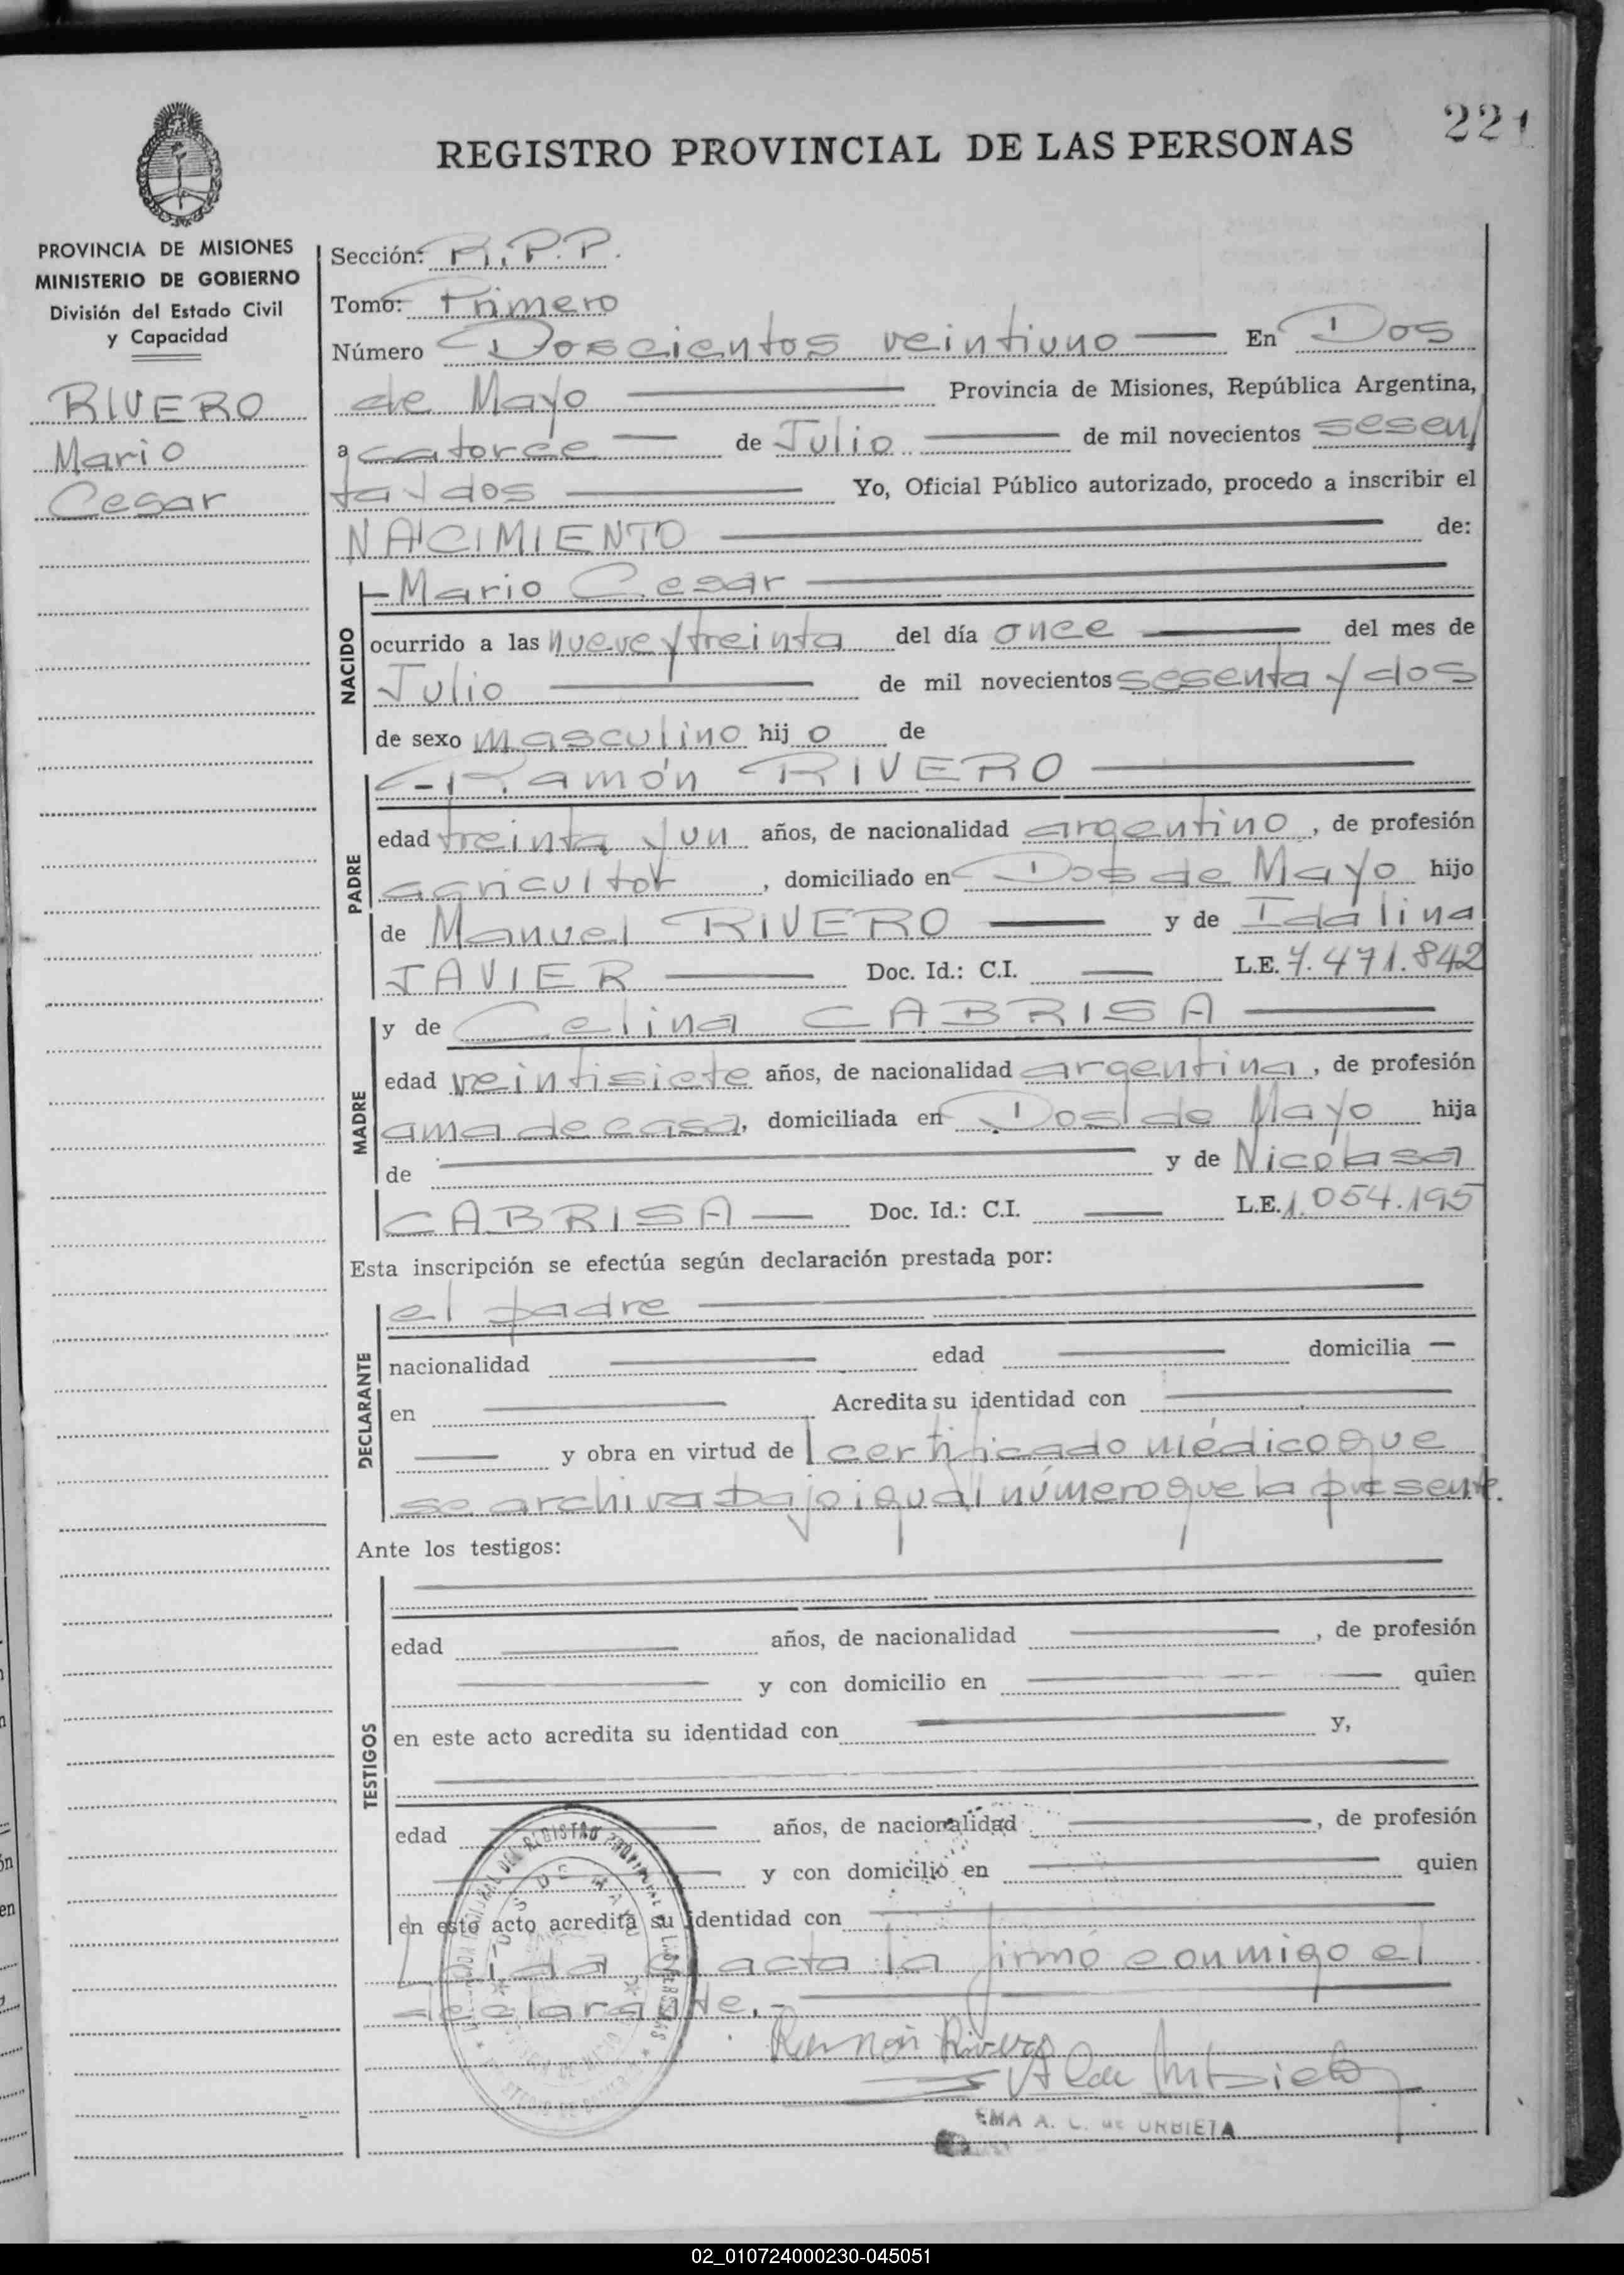 221
REGISTRO PROVINCIAL DE LAS PERSONAS
PROVINCIA DE MISIONES
MINISTERIO DE GOBIERNO
División del Estado Civil
y Capacidad
RIVERO
Mario
Cesar
Sección: R.P.P.
Tomo: Primero
Número Doscientos veintiuno En Dos
de Mayo Provincia de Misiones, República Argentina,
a catorce de Julio de mil novecientos sesen
ta y dos Yo, Oficial Público autorizado, procedo a inscribir el
NACIMIENTO de:
NACIDO
Mario Cesar
ocurrido a las nueve y treinta del día once del mes de
Julio de mil novecientos sesenta y dos
de sexo masculino hij o de
PADRE
Ramón RIVERO
edad treinta y un años, de nacionalidad argentino, de profesión
agricultor, domiciliado en Dos de Mayo hijo
de Manuel RIVERO y de Idalina
JAVIER Doc. Id.: C.I. L.E. 7.471.842
MADRE
y de Celina CABRISA
edad veintisiete años, de nacionalidad argentina, de profesión
ama de casa, domiciliada en Dos de Mayo hija
de y de Nicolasa
CABRISA Doc. Id.: C.I. L.E. 1.054.195
Esta inscripción se efectúa según declaración prestada por:
DECLARANTE
el padre
nacionalidad edad domicilia
en Acredita su identidad con
y obra en virtud de l certificado médico que
se archiva bajo igual número que la presente.
Ante los testigos:
TESTIGOS
edad años, de nacionalidad , de profesión
y con domicilio en quien
en este acto acredita su identidad con y,
edad años, de nacionalidad , de profesión
y con domicilio en quien
en este acto acredita su identidad con
Leida el acta la firmó conmigo el
declarante.-
Ramón Rivero
EMA A. C. de URBIETA
02_010724000230-045051